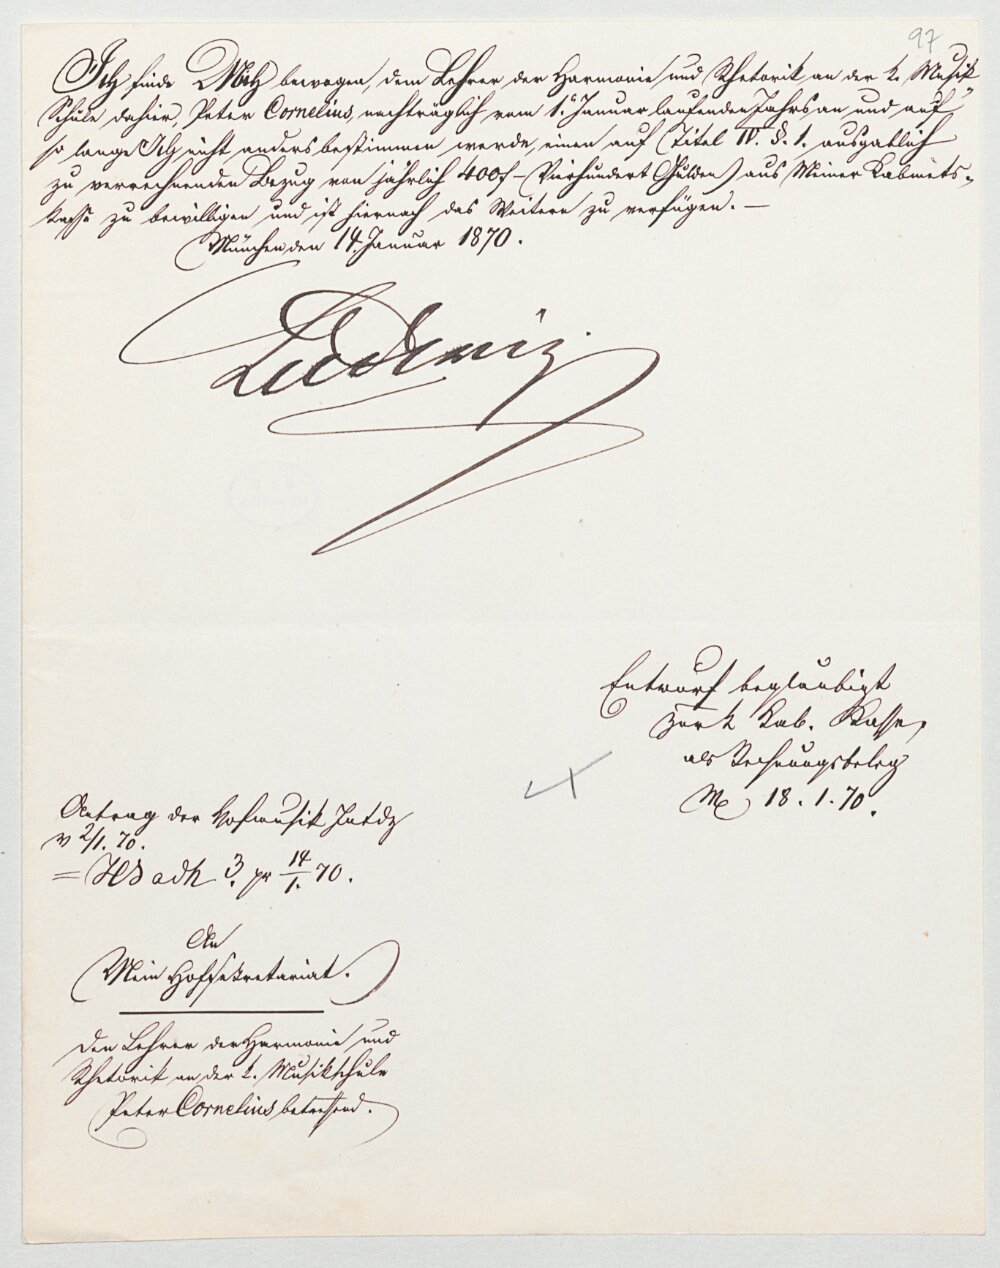 97
Ich finde Mich bewogen, dem Lehrer der Harmonie und Rhetorik an der k. Musik-
Schule dahier, Peter Cornelius, nachträglich vom 1. Januar laufenden Jahrs an und auf
so lange Ich nicht anders bestimmen werde, einen auf Titel IV. §. 1. ausgablich
zu verrechnenden Bezug von jährlich 400f – (Vierhundert Gulden) aus Meiner Kabinets-
kasse zu bewilligen und ist hiernach das Weitere zu verfügen. –
München den 14. Januar 1870.
Ludwig
Entwurf beglaubigt
zur k Kab. Kasse,
als Rechnungsbeleg
M 18. 1. 70.
Antrag der Hofmusik Intdz
v 2/1. 70.
= adh 3. pr 14/1. 70.
An
Mein Hofsekretariat.
Den Lehrer der Harmonie und
Rhetorik an der k. Musikschule
Peter Cornelius betreffend.